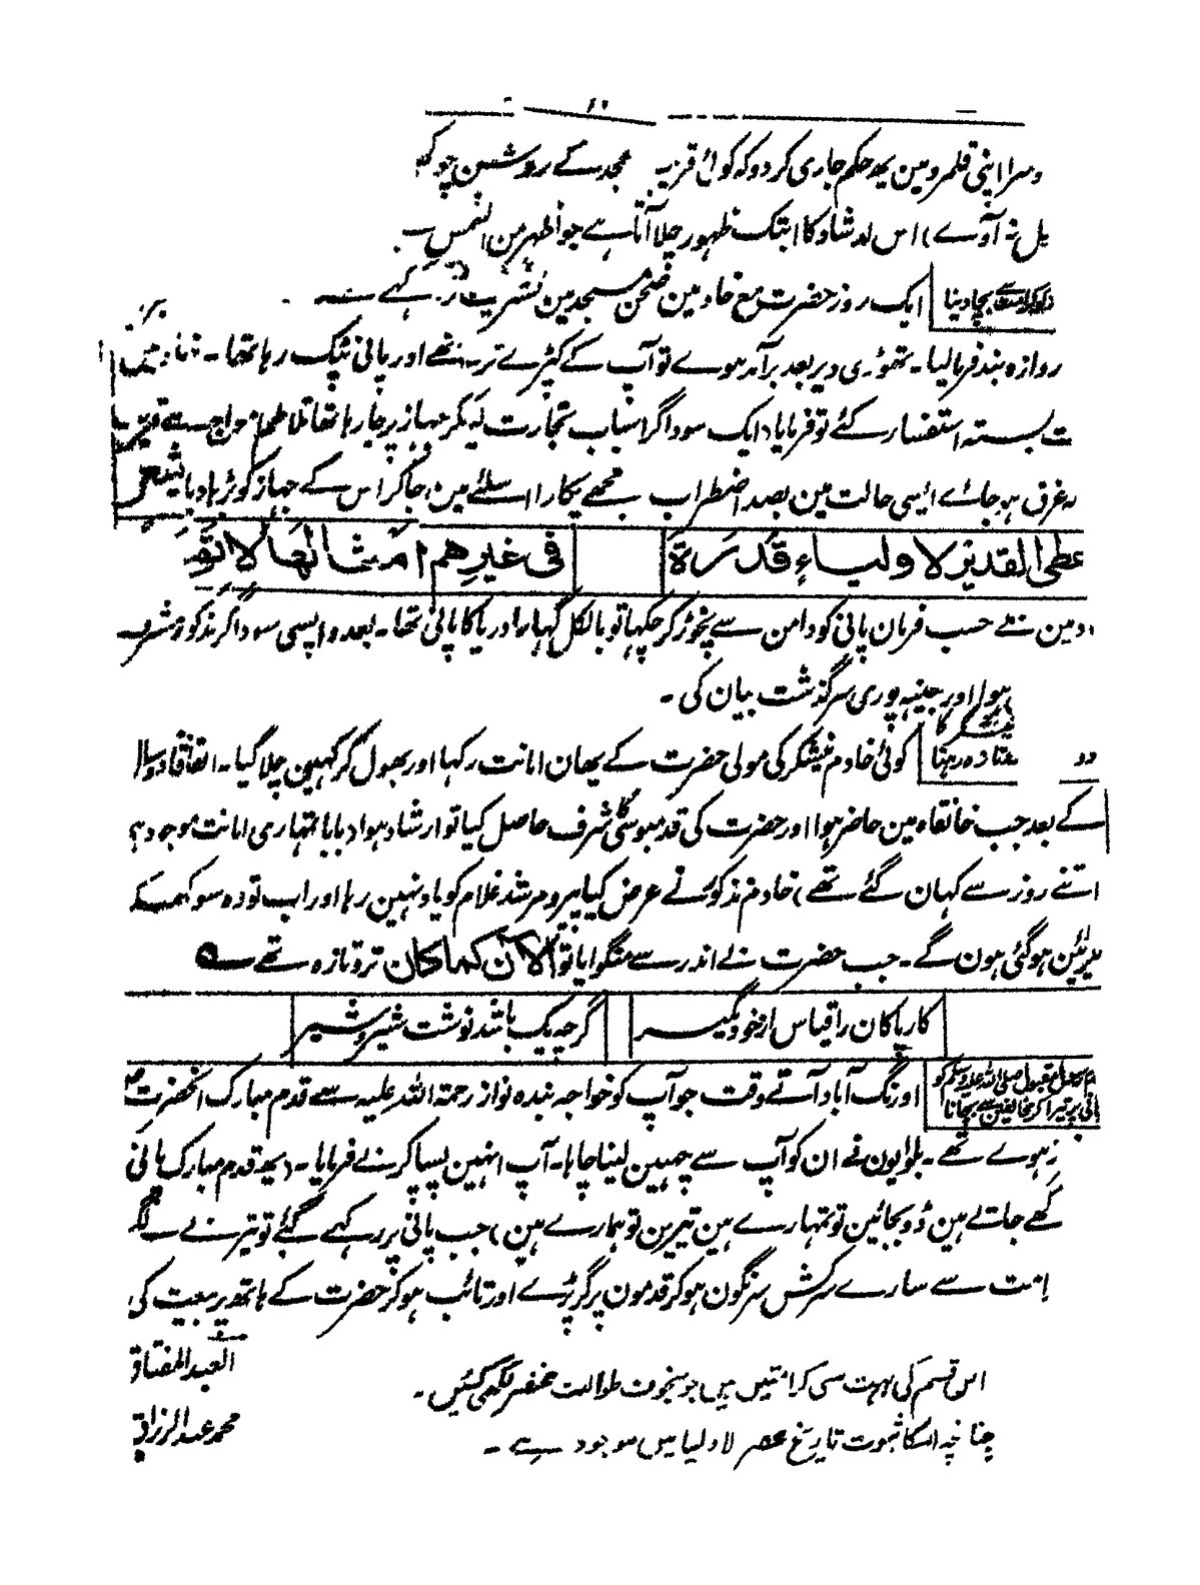 دسرا اپنی قلمرو مین یھ حکم جاری کردو کہ کوائ قریب مسجد کے روشن چوکھ
یل نہ آوے) اس ارشاد کا ابتک ظہور چلا آتا ہے جو اظہر من الشمس ہے.
بچا دینا ایک روز حضرت مع خادمین صحن مسجد مین تشریف رکہے
روازہ بند فرمالیا۔ تھوڑی دیر بعد برآمد ہوے تو آپ کے کپڑے تر تھے اور پانی ٹپک رہا تھا۔ خادمین
ت بستہ استفسار کئے تو فرمایا ایک سوداگر اسباب تجارت لیکر جہاز پر جا رہا تھا تلاطم امواج سے قریب
نہ غرق ہو جائے ایسی حالت مین بصد اضطراب مجھے پکارا اسلئے مین جا کر اس کے جہاز کو بڑہا دیا شعر
عطی القدیر لاولیاء قدرة فی غیرهم امثالها لا تو
ادمین نے حسب فرمان پانی کو دامن سے نچوڑ کر چکہا تو بالکل کہارا دریا کا پانی تھا۔ بعد واپسی سوداگر مذکور مشرف
ہوا اور بجنسہ پوری سرگذشت بیان کی۔
نیشکر کا
دو تازہ رہنا کوئی خادم نیشکر کی مولی حضرت کے یھان امانت رکہا اور بھول کر کہین چلا گیا۔ اتفاقاً دو سال
کے بعد جب خانقاہ مین حاضر ہوا اور حضرت کی قدمبوسی کا شرف حاصل کیا تو ارشاد ہوا (بابا تمہاری امانت موجود ہے
اتنے روز سے کہان گئے تھے) خادم مذکور نے عرض کیا پیر و مرشد غلام کو یاد نہین رہا اور اب تو وہ سوکھکر
ہوگئی ہون گے۔ جب حضرت نے اندر سے منگوایا تو الآن کما کان تر و تازہ تھے ؎
کار پاکان را قیاس از خود مگیر گرچہ یک باشد نوشت شیر و شیر
قدم رسول مقبول صلی اللہ علیہ وسلم کو
پانی پر تیرا کر مخالفین سے بچانا
اورنگ آباد آتے وقت جو آپ کو خواجہ بندہ نواز رحمۃ اللہ علیہ سے قدم مبارک آنحضرت ؐ
زہوے تھے۔ بلوایون نے ان کو آپ سے چہین لینا چاہا۔ آپ انہین پسپا کرنے فرمایا۔ (یھ قدم مبارک پانی
کھے جاتے ہین ڈوبجائین تو تمہارے ہین تیرین تو ہمارے ہین) جب پانی پر رکہے گئے تو تیرنے لگے
امت سے سارے سرکش سرنگون ہو کر قدمون پر گر پڑے اور تائب ہو کر حضرت کے ہاتھ پر بیعت کی
اس قسم کی بہت سی کرامتیں ہیں جو بخوف طوالت مختصر لکھی گئیں۔
چنانچہ اسکا ثبوت تاریخ عصر لاولیا میں موجود ہے۔
العبد المفتاق
محمد عبد الرزاق